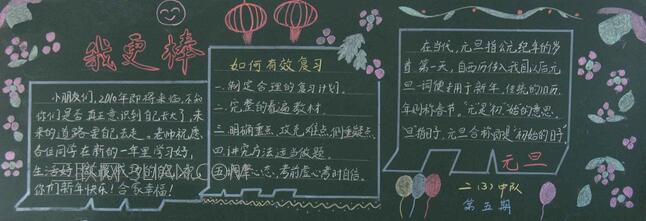 我更棒
小朋友们,2010年即将来临,不知
你们是否真正意识到自己长大了,未
来的道路要自己去走。老师祝愿
各位同学在新的一年里学习好,
生活好
你们新年快乐!合家幸福!
如何有效复习
一.制定合理的复习计划.
二.完整的看遍教材.
三.明确重点、攻克难点、侧重疑点.
四.讲究方法适当做题.
五.调整心态、考前虚心考时自信.
在当代,元旦指公元纪年的岁
首第一天,自西历传入我国以后元
旦一词便专用于新年,传统的旧历
年则称春节。"元"是"初"始的意思.
"旦"指日子,元旦合称即是"初始的日子".
元旦
二(3)中队
第五期